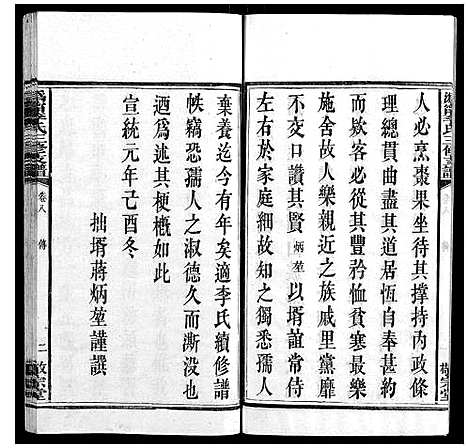 人必烹棗果坐待其撑持内政條
理總貫曲盡其道居恆自奉甚約
而歎客必從其豐矜恤貧寒最樂
施舍故人樂親近之族戚里黨靡
不交口讚其賢炳堃以壻誼常侍
左右於家庭細故知之獨悉孺人
棄養迄今有年矣適李氏續修譜
帙竊恐孺人之淑德久而澌没也
迺爲述其梗概如此
宣統元年己酉冬
拙壻蔣炳堃謹譔
李氏三修支譜
卷八 傳
二 敬宗堂